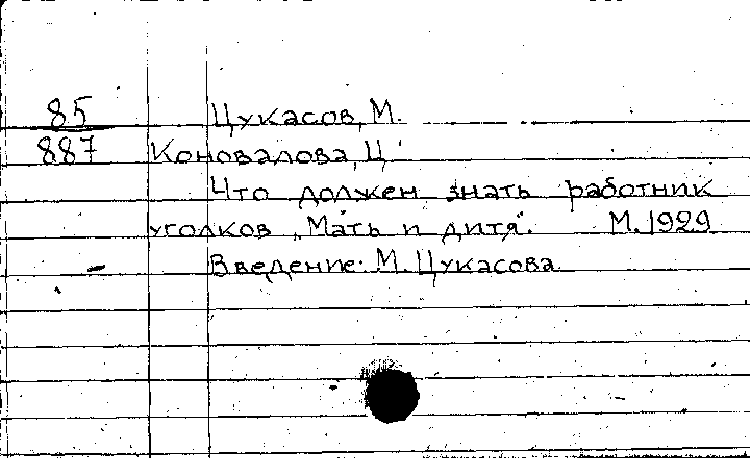 85 Цукасов, М.
887 Коновалова, Ц.
Что должен знать работник
уголков „Мать и дитя“. М. 1929
Введение: М. Цукасова